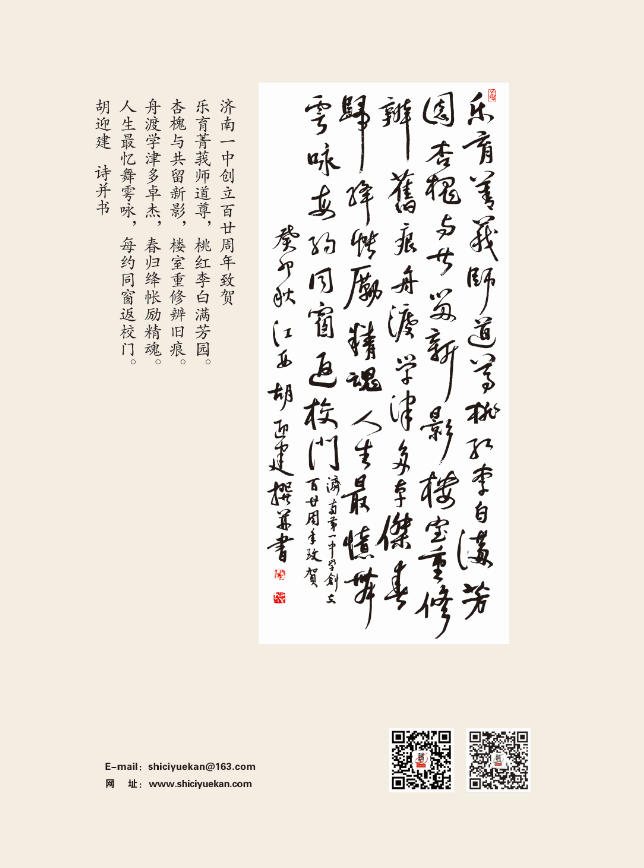 济南一中创立百廿周年致贺
乐育菁莪师道尊，桃红李白满芳园。
杏槐与共留新影，楼室重修辨旧痕。
舟渡学津多卓杰，春归绛帐励精魂。
人生最忆舞雩咏，每约同窗返校门。
胡迎建 诗并书
乐育菁莪師道尊桃红李白满芳
园杏槐与共留新影楼室重修
辨舊痕舟渡学津多卓傑春
歸绛帐励精魂人生最憶舞
雩咏每约同窗返校门
濟南第一中学創立
百廿周年致贺
癸卯秋江西胡迎建撰并書
E-mail：shiciyuekan@163.com
网 址：www.shiciyuekan.com